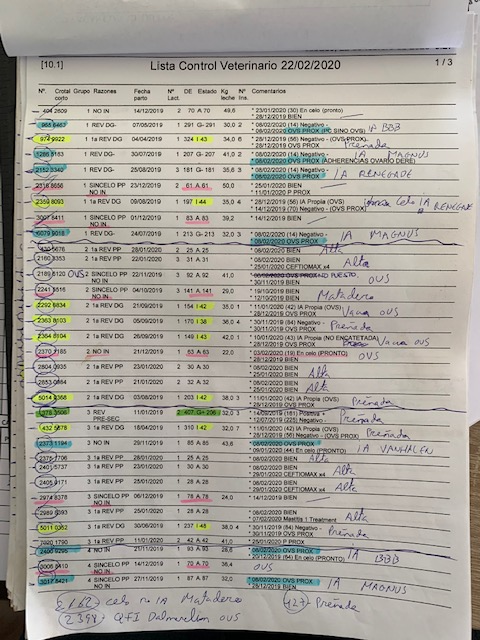 [10.1] Lista Control Veterinario 22/02/2020 1 / 3
Nº. Cotal Grupo Razones DE Nº. DES Estado Kg Nº. Comentarios
corto Lact. leche Ins.
404 2609 1 NO IN 14/12/2019 2 70 A 70 49,6 * 23/01/2020 (30) En celo (pronto)
* 28/12/2019 BIEN
965 6463 1 REV DG- 07/05/2019 1 291 G- 291 30,0 2 * 08/02/2020 (14) Negativo -
* 08/02/2020 OVS PROX SINO OVS) IA BBB
974 9922 1 1a REV DG 04/04/2019 1 324 I 43 34,0 6 * 28/12/2019 (56) Negativo - (OVS PROX)
* 28/12/2019 OVS PROX Preñada
1286 8183 1 REV DG- 30/07/2019 1 207 G- 207 41,0 2 * 08/02/2020 (14) Negativo - IA MAGNUS
* 08/02/2020 OVS PROX (ADHERENCIAS OVARIO DERE)
2152 3340 1 REV DG- 25/08/2019 3 181 G- 181 35,6 3 * 08/02/2020 (14) Negativo -
* 08/02/2020 OVS PROX IA RENEGADE
2318 8656 1 SINCELO PP 23/12/2019 2 61 A 61 50,0 * 25/01/2020 BIEN
NO IN * 11/01/2020 P PROX
2359 8093 1 1a REV DG 09/08/2019 1 197 I 44 35,0 4 * 28/12/2019 (56) IA Propia (OVS) celo IA RENEGADE
* 28/12/2019 (70) Negativo - (OVS PROX)
3007 8411 1 SINCELO PP 01/12/2019 1 83 A 83 39,2 * 14/12/2019 BIEN
NO IN
6079 9018 1 REV DG- 24/07/2019 1 213 G- 213 32,0 3 * 08/02/2020 (14) Negativo - IA MAGNUS
* 08/02/2020 OVS PROX
430 5676 2 1a REV PP 28/01/2020 2 25 A 25 * 08/02/2020 BIEN Alta
2160 8353 2 1a REV PP 22/01/2020 3 31 A 31 * 08/02/2020 BIEN
* 25/01/2020 CEFTIOMAX x4 Alta
2189 8120 OVS 2 SINCELO PP 22/11/2019 3 92 A 92 41,0 * 08/02/2020 OVS PROX NO PUESTO.
NO IN * 30/11/2019 BIEN OVS
2241 8516 2 SINCELO PP 04/10/2019 3 141 A 141 29,0 * 19/10/2019 BIEN
NO IN * 12/10/2019 Matadero
2292 8834 2 1a REV DG 21/09/2019 1 154 I 42 35,0 1 * 11/01/2020 (42) IA Propia (OVS)
* 28/12/2019 OVS PROX Vacia OVS
2363 8103 2 1a REV DG 05/09/2019 1 170 I 38 36,0 4 * 30/11/2019 (84) Negativo -
* 30/11/2019 OVS PROX Preñada
2364 8104 2 1a REV DG 26/09/2019 1 149 I 43 42,0 1 * 10/01/2020 (43) IA Propia (NO ENCATETADA)
* 28/12/2019 OVS PROX Vacia OVS
2370 7185 2 NO IN 21/12/2019 1 63 A 63 22,0 * 03/02/2020 (19) En celo (PRONTO)
* 28/12/2019 BIEN OVS
2804 0935 2 1a REV PP 23/01/2020 2 30 A 30 * 08/02/2020 BIEN
* 25/01/2020 BIEN Alta
2853 0864 2 1a REV PP 21/01/2020 2 32 A 32 * 08/02/2020 BIEN
* 25/01/2020 BIEN Alta
5014 9368 2 1a REV DG 03/08/2019 1 203 I 42 38,0 3 * 11/01/2020 (42) IA Propia (OVS)
* 28/12/2019 OVS PROX Preñada
3 REV 2 407 G+ 206 32,0 3 * 14/09/2019 Positiva +
PRE-SEC * 12/07/2019 Negativo - Preñada
432 5678 3 1a REV DG 18/04/2019 1 310 I 42 32,0 7 * 11/01/2020 (42) IA Propia (OVS)
* 28/12/2019 (56) Negativo - (OVS PROX) Preñada
2373 1194 3 NO IN 29/11/2019 1 85 A 85 43,6 * 08/02/2020 OVS PROX
* 09/01/2020 (44) En celo (PRONTO) IA VANHALEN
2375 7706 3 1a REV PP 28/01/2020 1 25 A 25 * 08/02/2020 BIEN Alta
2401 5737 3 1a REV PP 23/01/2020 1 30 A 30 * 08/02/2020 BIEN
* 29/01/2020 CEFTIOMAX x4 Alta
2405 9171 3 1a REV PP 25/01/2020 1 28 A 28 * 08/02/2020 BIEN
* 29/01/2020 CEFTIOMAX x4 Alta
2974 8378 3 SINCELO PP 06/12/2019 1 78 A 78 24,0 * 14/12/2019 BIEN
NO IN
2989 8393 3 1a REV PP 25/01/2020 1 28 A 28 * 08/02/2020 BIEN
* 07/02/2020 Mastitis 1 Treatment Alta
5011 0352 3 1a REV DG 30/06/2019 1 237 I 48 38,0 4 * 30/11/2019 (84) Negativo -
* 30/11/2019 OVS PROX Preñada
7890 1790 3 1a REV PP 11/01/2020 2 42 A 42 41,0 * 25/01/2020 P PROX
2400 9295 4 NO IN 21/11/2019 1 93 A 93 26,6 * 08/02/2020 OVS PROX
* 20/12/2019 (64) En celo (PRONTO) IA BBB
3006 8410 4 SINCELO PP 14/12/2019 1 70 A 70 38,4 * 28/12/2019 BIEN
NO IN OVS
3017 8421 4 SINCELO PP 27/11/2019 1 87 A 87 32,0 * 08/02/2020 OVS PROX
NO IN * 28/12/2019 BIEN IA MAGNUS
2162 celo no IA Matadero 427 Preñada
2398 QFI Dalmarelin OVS